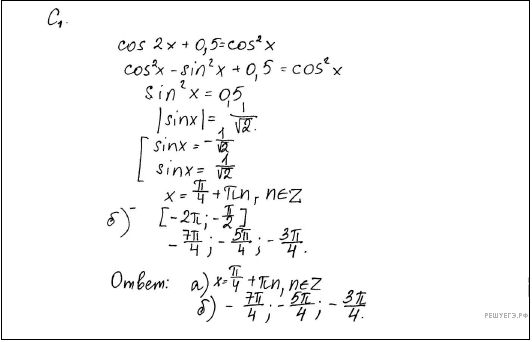 C₁.
cos 2x + 0,5 = cos²x
cos²x - sin²x + 0,5 = cos²x
sin²x = 0,5
|sinx| = 1/√2.
[ sinx = -1/√2
sinx = 1/√2
x = π/4 + πn, n∈Z
б) [-2π; -π/2]
-7π/4; -5π/4; -3π/4.
Ответ: а) x = π/4 + πn, n∈Z
б) -7π/4; -5π/4; -3π/4.
РЕШУЕГЭ.РФ